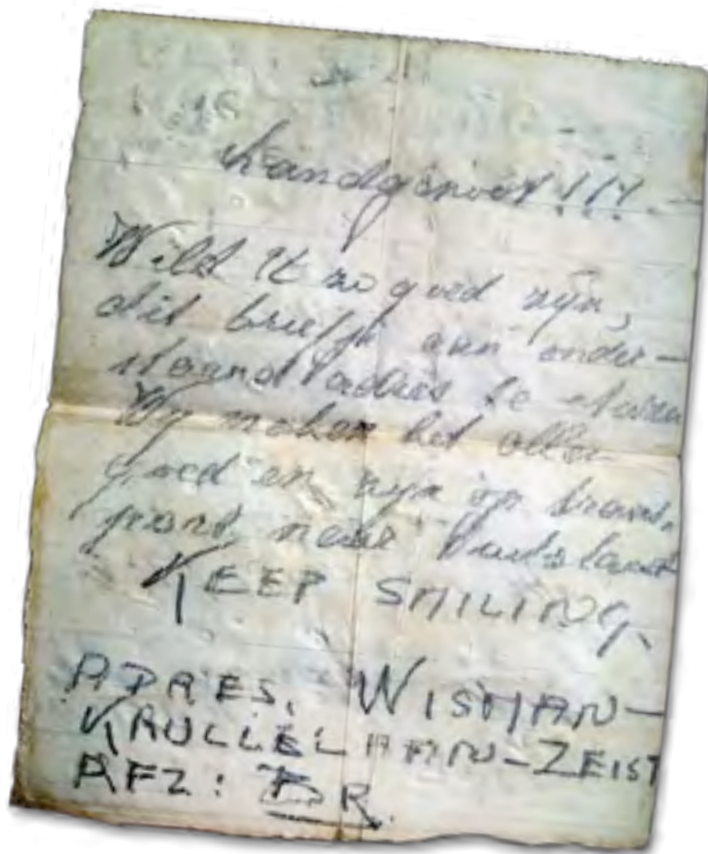 Landgenoot!!!.—
Wilt U zo goed zijn,
dit briefje aan onder—
staand adres te sturen
Wij maken het allen
goed en zijn op trans-
port naar Duitsland
KEEP SMILING.
ADRES. WISMAN—
KRULLELAAN-ZEIST
AFZ: BR.